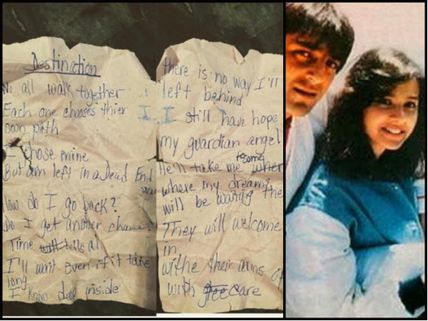 Destination
all walk together
Each one choses thier
own path
chose mine
But am left in a Dead End
How do I go back?
Do I get another chance
Time will tells all
I'll wait even if it take
long
I know deep inside
there is no way I'll
left behind
I still have hope
my guardian angel
He'll take me where
where my dreams
will be waring the
They will welcome
in
withe their arms
with care